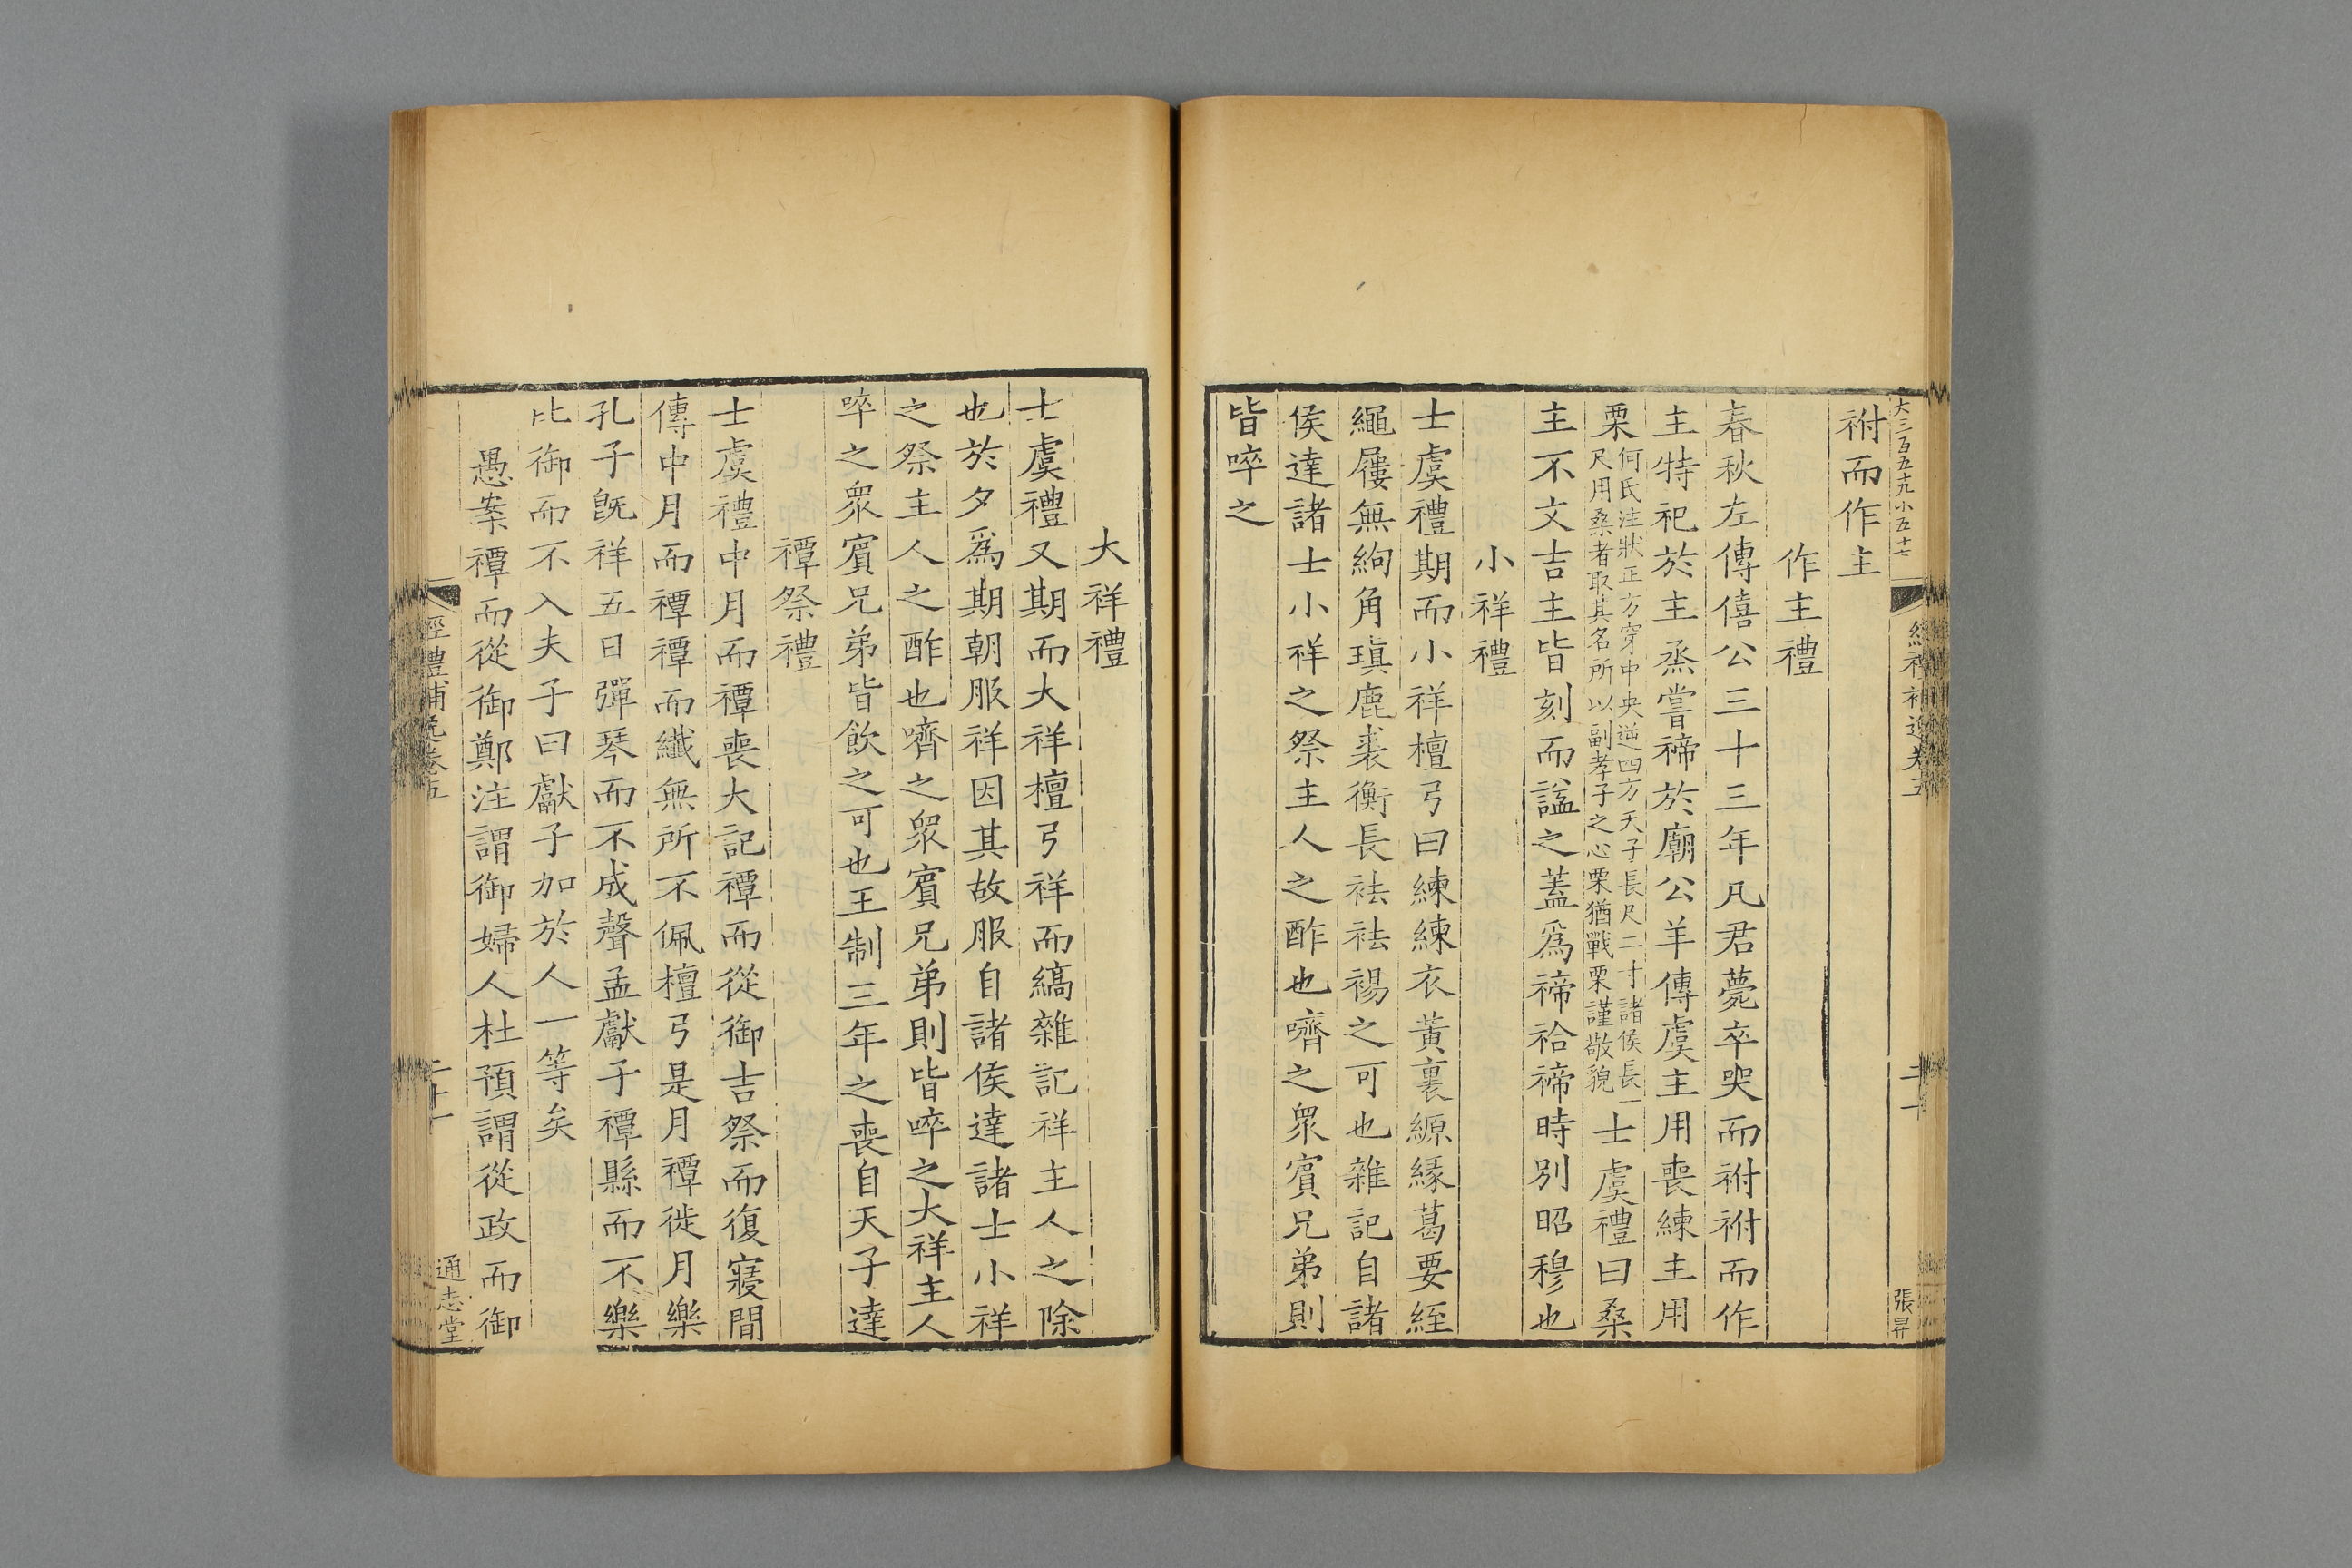 大三百五十九小五十七
經禮補逸卷五
二十
張昇
祔而作主
作主禮
春秋左傳僖公三十三年凡君薨卒哭而祔祔而作
主特祀於主烝嘗禘於廟公羊傳虞主用喪練主用
栗何氏注狀正方穿中央逹四方天子長尺二寸諸侯長一
尺用桑者取其名所以副孝子之心栗猶戰栗謹敬貌士虞禮曰桑
主不文吉主皆刻而諡之蓋爲禘祫禘時別昭穆也
小祥禮
士虞禮期而小祥檀弓曰練練衣黃裏縓緣葛要絰
繩屨無絇角瑱鹿裘衡長袪袪裼之可也雜記自諸
侯達諸士小祥之祭主人之酢也嚌之衆賓兄弟則
皆啐之
大祥禮
士虞禮又期而大祥檀弓祥而縞雜記祥主人之除
也於夕爲期朝服祥因其故服自諸侯達諸士小祥
之祭主人之酢也嚌之衆賓兄弟則皆啐之大祥主人
啐之衆賓兄弟皆飲之可也王制三年之喪自天子達
禫祭禮
士虞禮中月而禫喪大記禫而從御吉祭而復寢間
傳中月而禫禫而纖無所不佩檀弓是月禫徙月樂
孔子旣祥五日彈琴而不成聲孟獻子禫縣而不樂
比御而不入夫子曰獻子加於人一等矣
愚案禫而從御鄭注謂御婦人杜預謂從政而御
經禮補逸卷五
二十一
通志堂